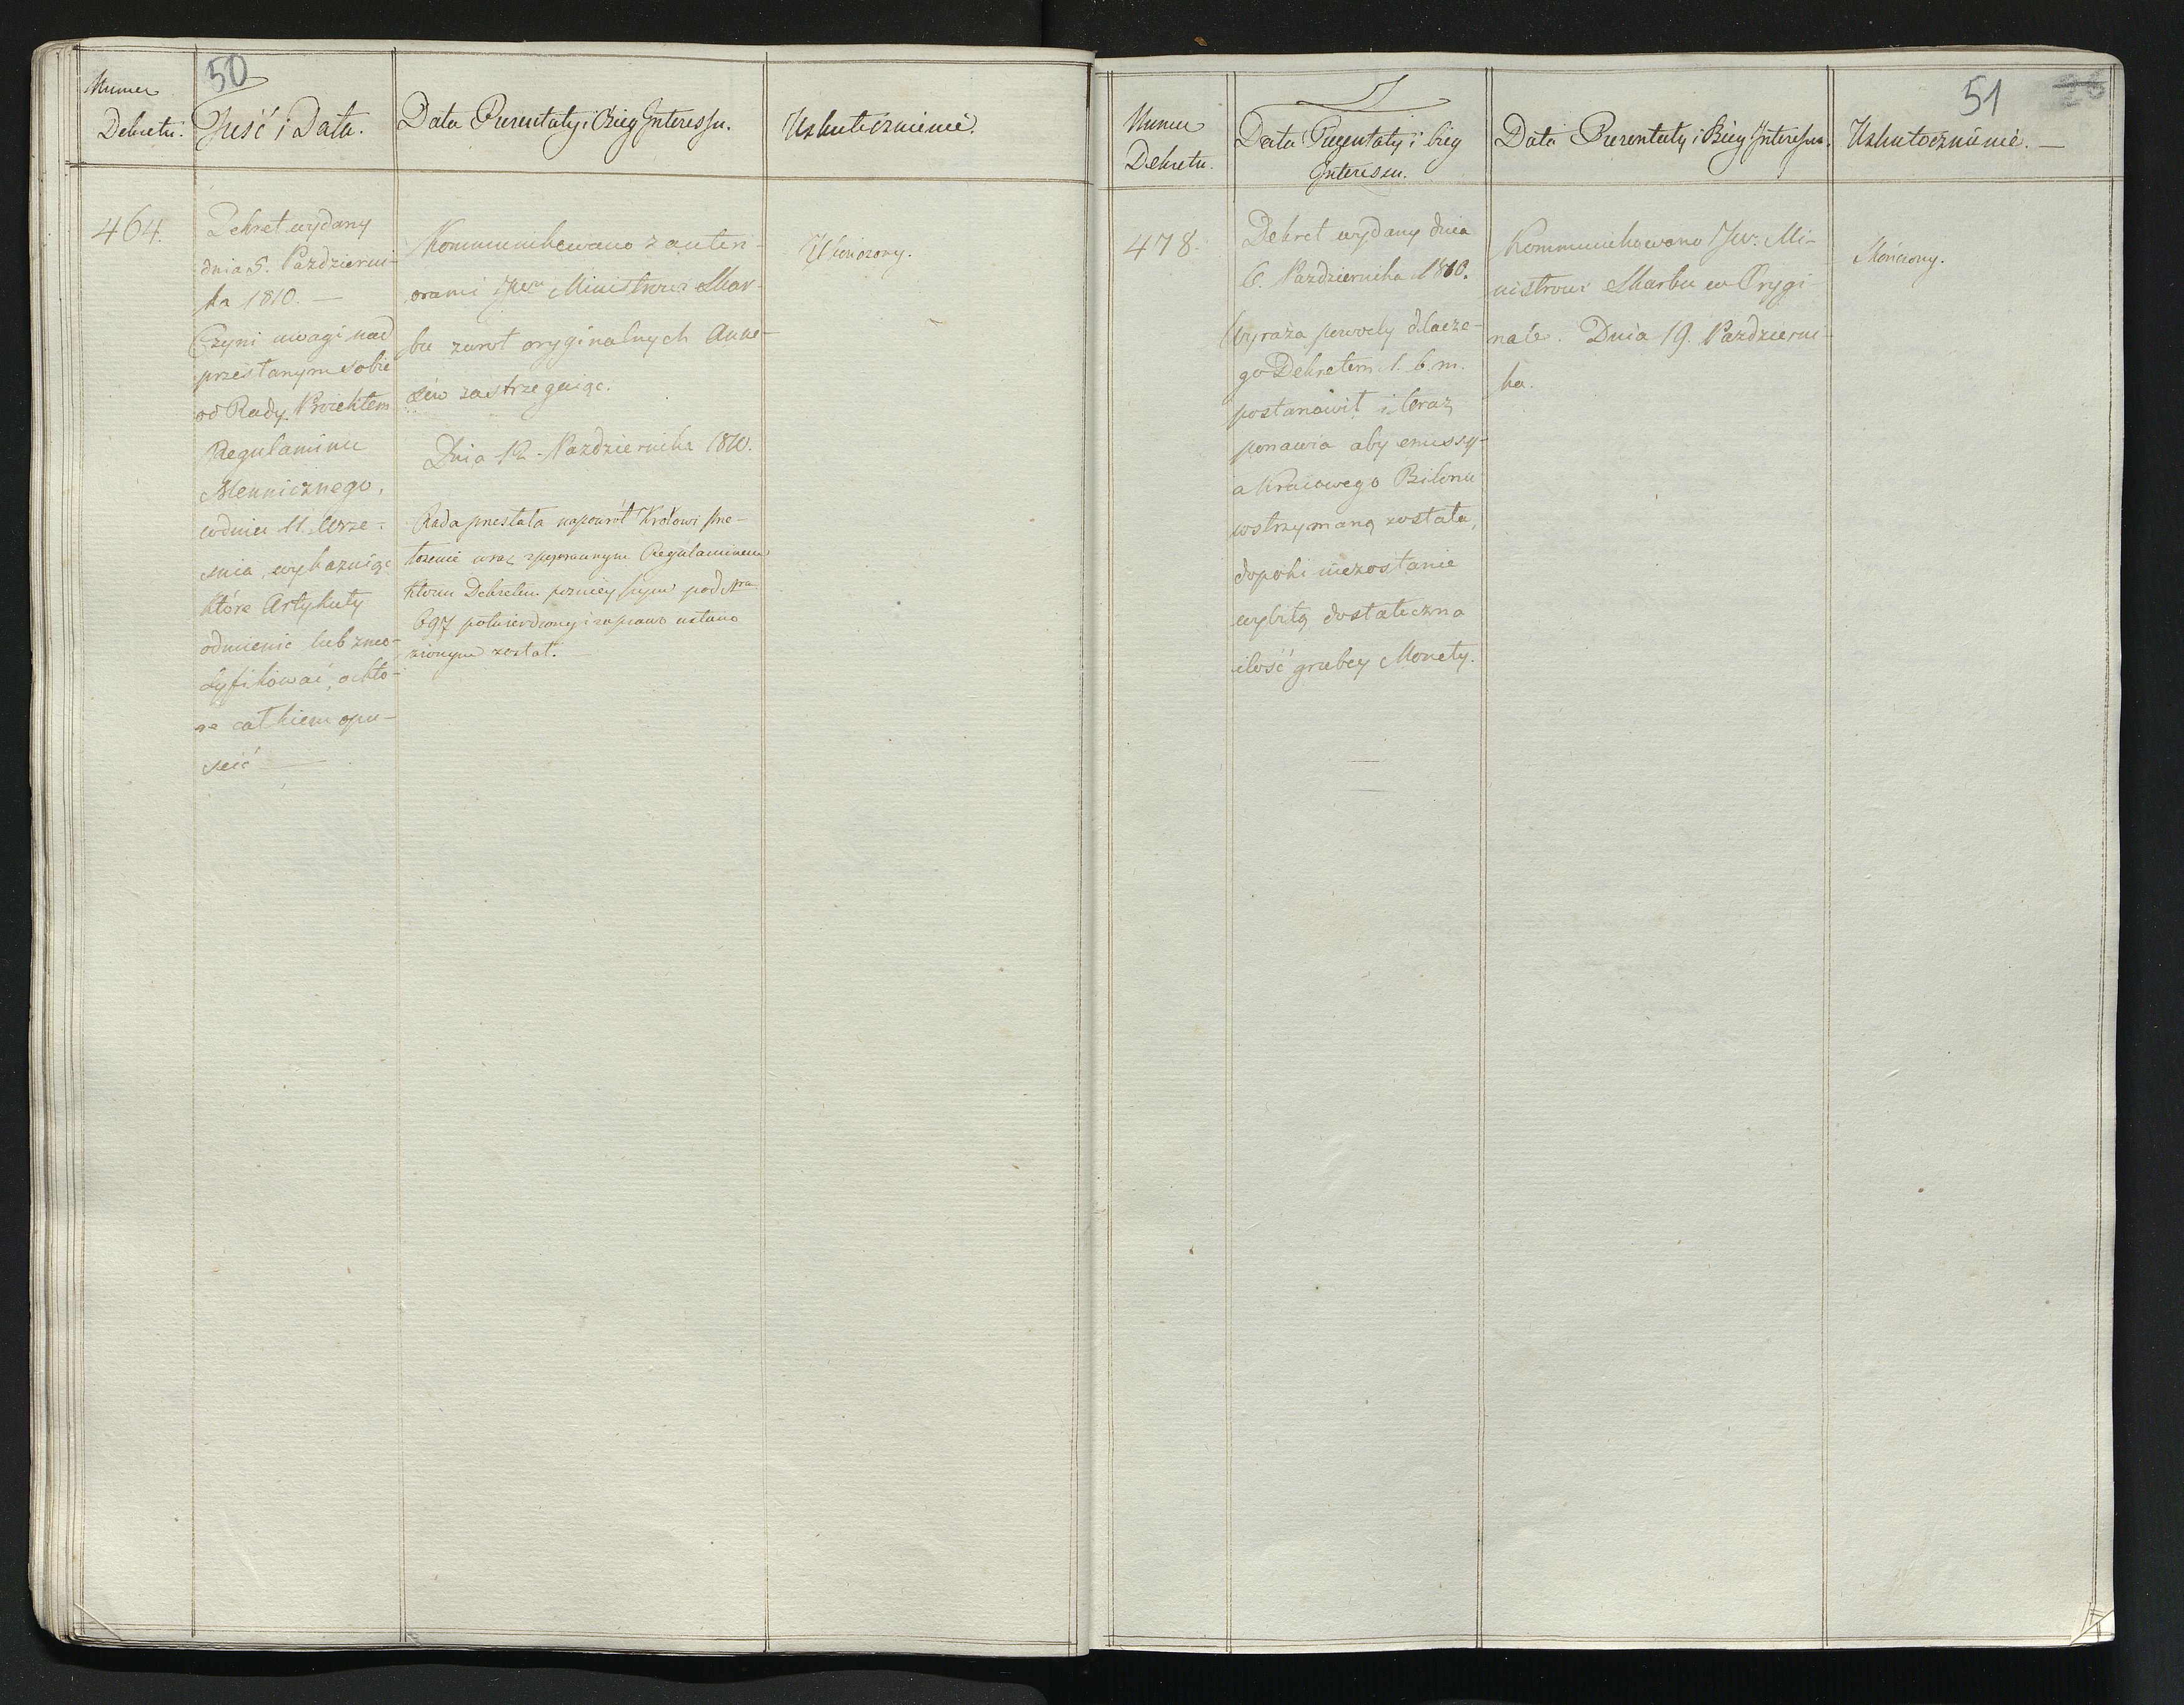 50
Numer
Dekretu.
Treść i Data.
Data Prezentaty i Bieg Interessu.
Uskutecznienie.
464.
Dekret wydany
dnia 5. Pazdzierni-
ka 1810. —
Czyni uwagi nad
przesłanym sobie
od Rady Proiektem
Regulaminu
Mennicznego,
w dniu 11. Wrze-
śnia, wykazuiąc
które Artykuły
odmienić lub zmo-
dyfikować, a któ-
re całkiem opu-
ścić —
Kommunikowano z anteri-
orami JWu Ministrowi Skar-
bu zwrot oryginalnych Anne-
xów zastrzegaiąc.
Dnia 12. Pazdziernika 1810.
Rada przesłała napowrót Królowi prze-
łożenie wraz z poprawnym Regulaminem
który Dekretem pozniey szym pod Nrem
697 potwierdzony i
zionym został.
Ukończony.
51
Numer
Dekretu.
Data Prezentaty i bieg
Interessu.
Data Prezentaty i Bieg Interessu.
Uskutecznienie. —
478.
Dekret wydany dnia
6. Pazdziernika 1810.
Wyraża powody dlacze-
go Dekretem 1. b. m.
postanowił i teraz
ponawia aby emissy-
a Kraiowego Bilonu
wstrzymaną została,
dopoki niezostanie
wybitą dostateczna
ilość grubey Monety.
Kommunikowano JW. Mi-
nistrowi Skarbu w Orygi-
nale. Dnia 19. Pazdzierni-
ka.
Skończony.